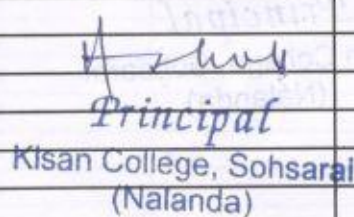 Ashok
Principal
Kisan College, Sohsarai
(Nalanda)